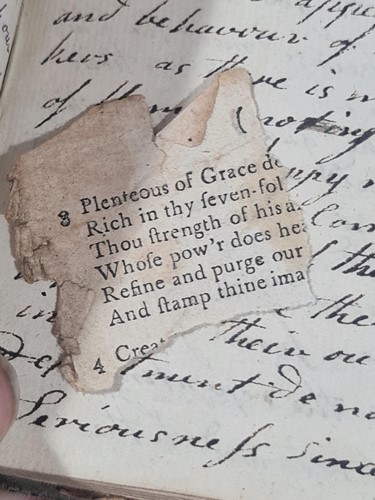 and behaviour of
hers as there is
of
3 Plenteous of Grace de
Rich in thy ſeven-fol
Thou ſtrength of his a
Whoſe pow'r does hea
Refine and purge our
And ſtamp thine ima
4 Crea
the
their ou
tment de no
Seriousneſs since